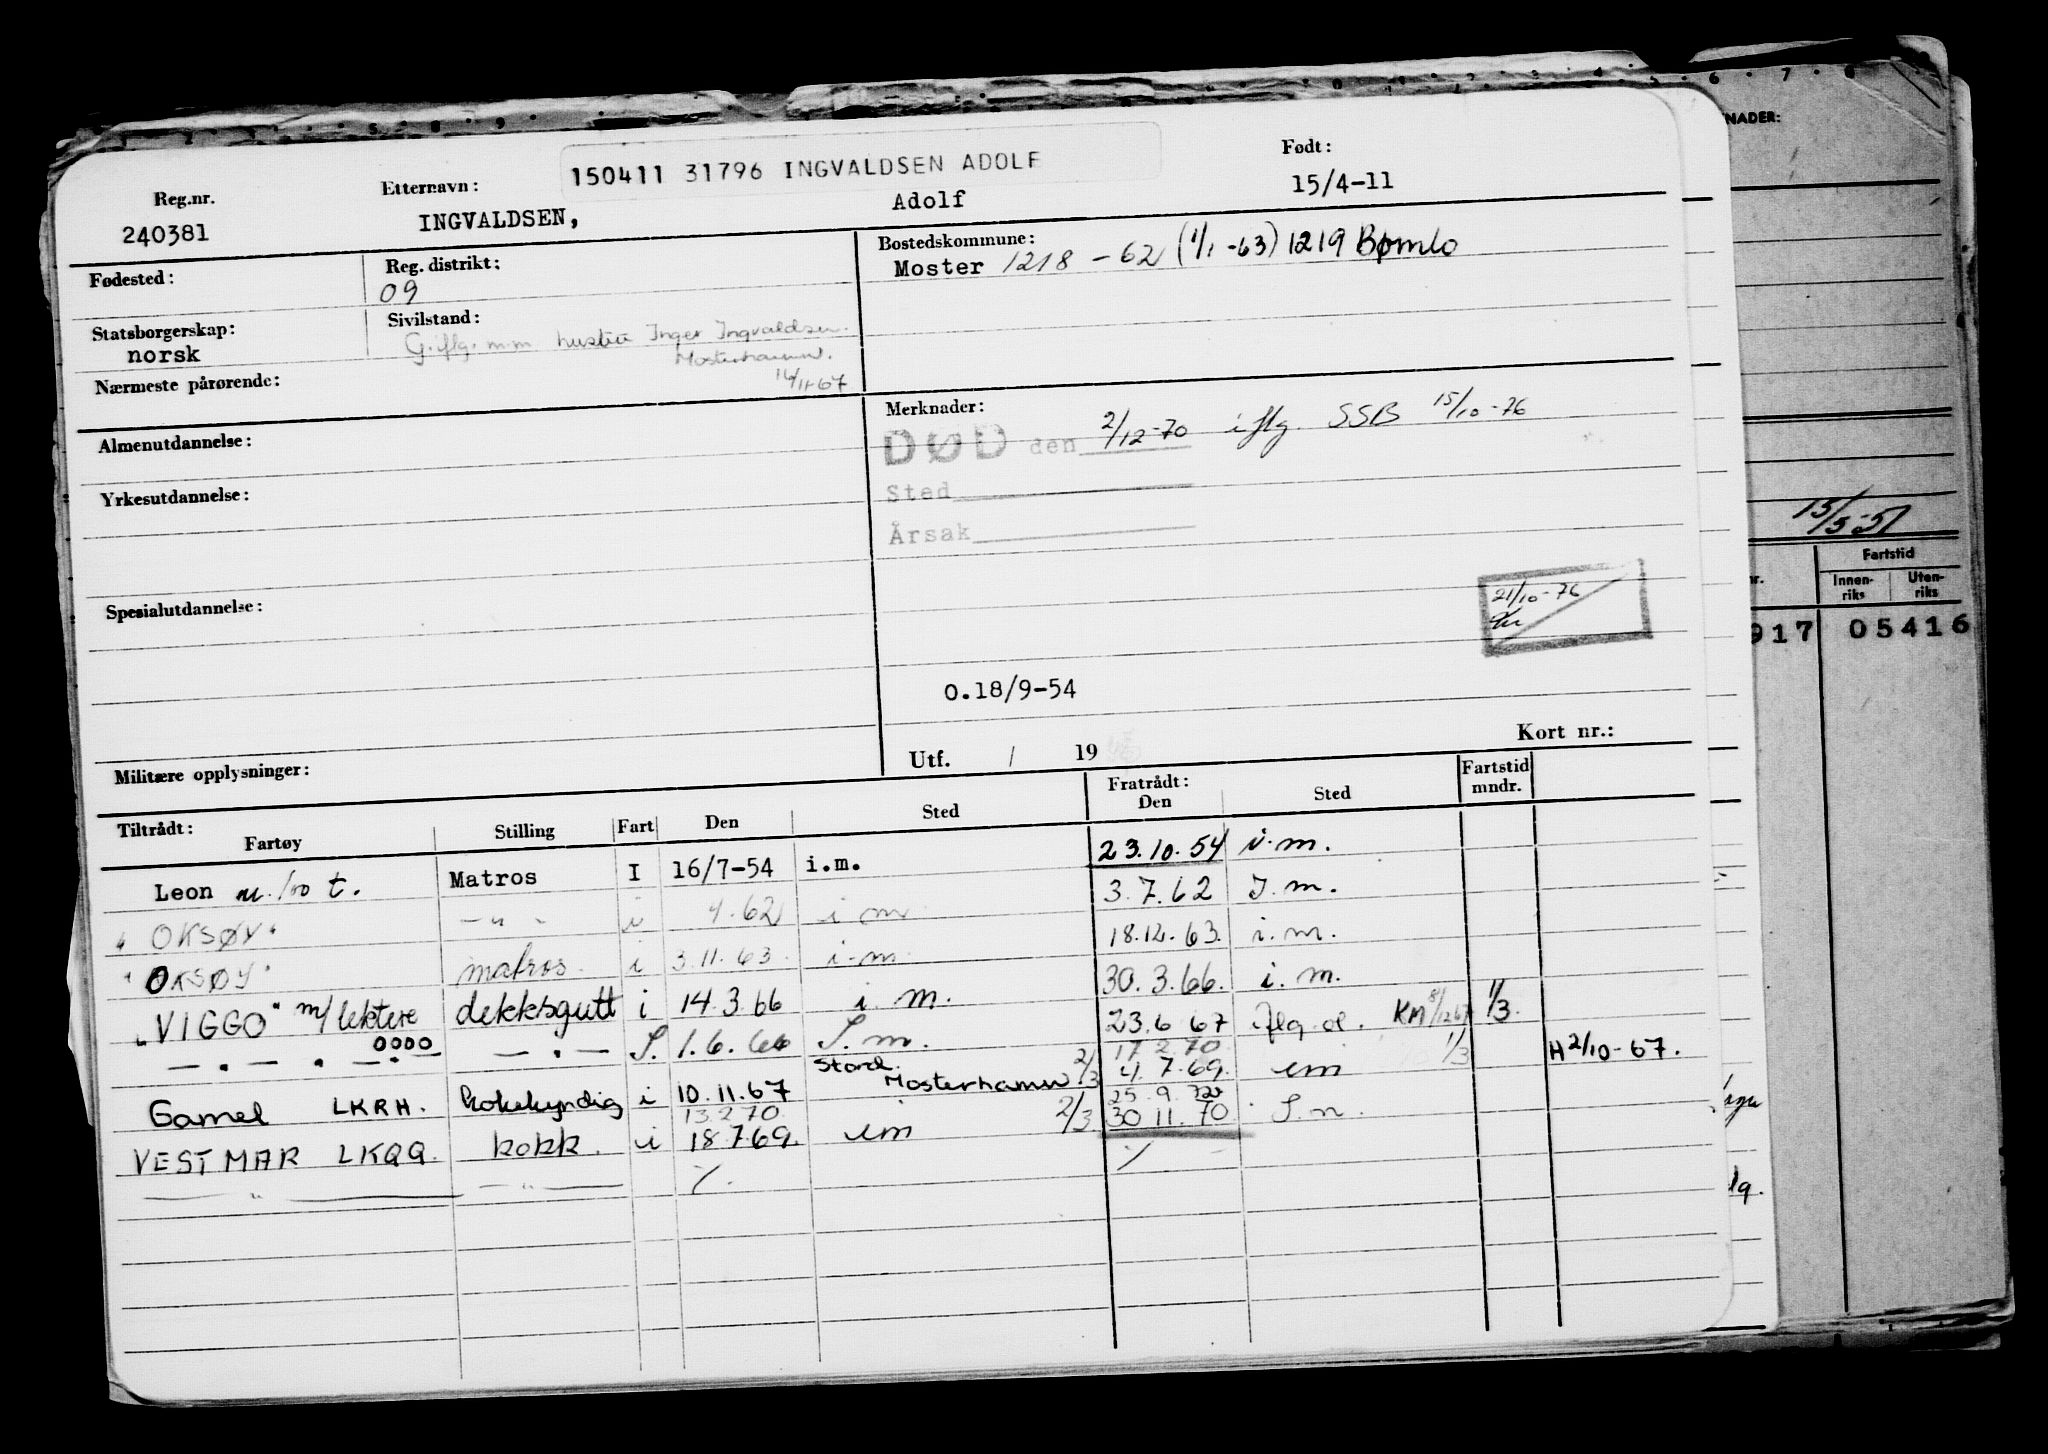 150411 31796 INGVALDSEN ADOLF
Reg.nr. Etternavn: Født:
240381 INGVALDSEN, Adolf 15/4-11
Fødested: Reg. distrikt: Bostedskommune:
09 Moster 1218 - 62 (1/1 -63) 1219 Bømlo
Statsborgerskap: Sivilstand:
norsk G. iflg. m.m hustru Inger Ingvaldsen.
Mosterhamn.
Nærmeste pårørende: 16/11-67
Merknader:
Almenutdannelse: DØD den 2/12-70 iflg. SSB 15/10-76
Yrkesutdannelse: Sted
Årsak
21/10-76
Spesialutdannelse:
O.18/9-54
Militære opplysninger: Utf. / 19 Kort nr.:
Tiltrådt: Fratrådt: Fartstid
Fartøy Stilling Fart Den Sted Den Sted mndr.
Leon m. 100 t. Matros I 16/7-54 i.m. 23.10.54 i.m.
" OKSØY " - " - i 4.62 i m 3.7.62 I.m.
" OKSØY " matros. i 3.11.63. i.m. 18.12.63. i.m.
"VIGGO" m/lektere dekksgutt i 14.3.66 i.m. 30.3.66. i.m.
0000
— " — " — " — — " — S. 1.6.66 S.m. 23.6 67 iflg. KM 8/12 67 1/3.
Gamel LKRH. kokekyndig i 10.11.67 Stord. Mosterhamn 2/3 17 2 70 4.7.69. um 1/3 H 2/10-67.
VESTMAR LKQQ. kokk. i 13.2.70 18.7.69. um 2/3 25.9. 30 11.70 S.m.
— " — — " — /. /
NADER:
15/5-51
nr. Fartstid
Innen-
riks
Uten-
riks
917 05416